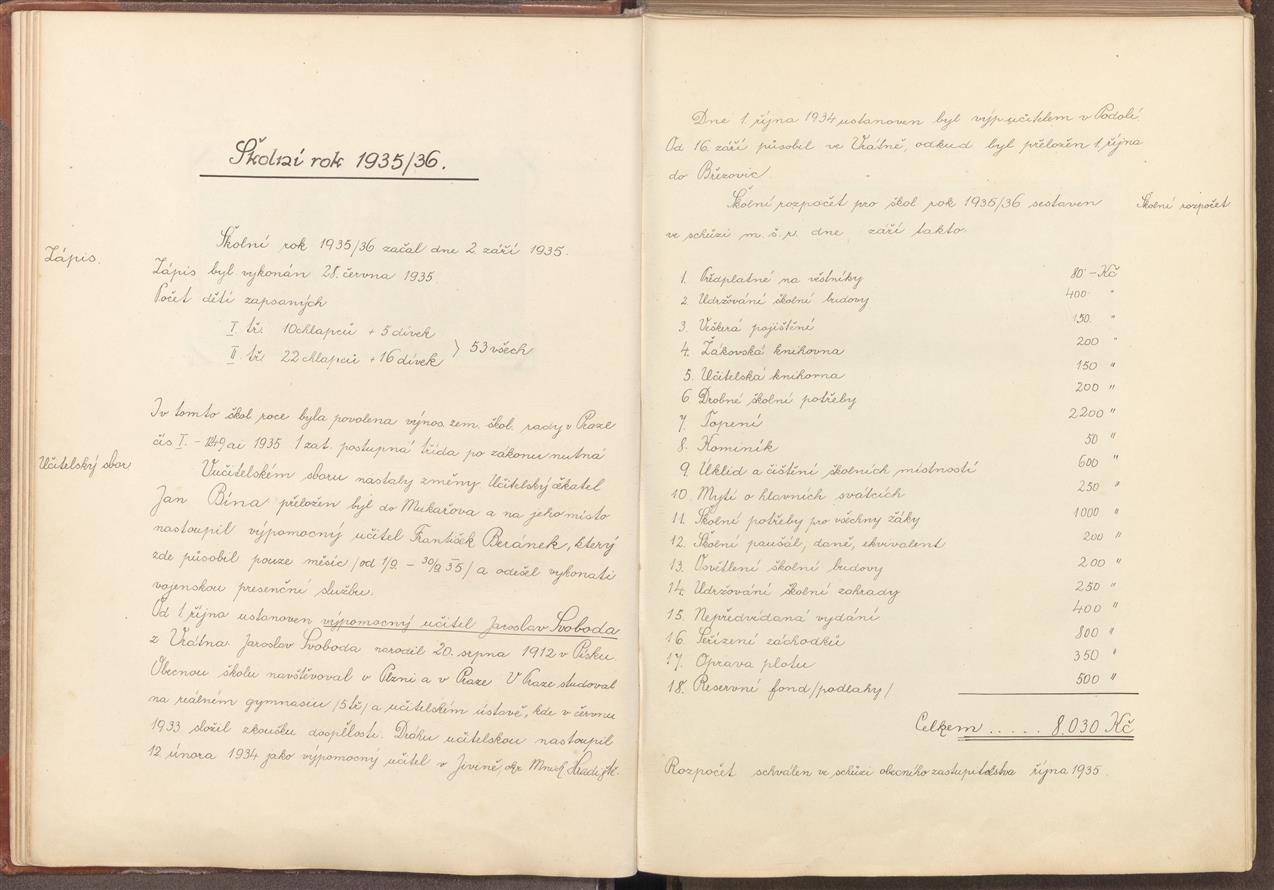 Školní rok 1935/36.
Školní rok 1935/36 začal dne 2. září 1935.
Zápis.
Zápis byl vykonán 28. června 1935.
Počet dětí zapsaných
I. tř. 10 chlapců + 5 dívek
II. tř. 22 chlapců + 16 dívek > 53 všech
I v tomto škol roce byla povolena výnos. zem. škol. rady v Praze
čís I. – ai 1935 1 zat. postupná třída po zákonu nutná
Učitelský sbor
V učitelském sboru nastaly změny Učitelský čekatel
Jan Bína přeložen byl do Mukařova a na jeho místo
nastoupil výpomocný učitel František Beránek, který
zde působil pouze měsíc /od 1/9. – 30/9. 35/ a odešel vykonati
vojenskou presenční službu.
Od 1 října ustanoven výpomocný učitel Jaroslav Svoboda
z Vrátna. Jaroslav Svoboda narodil 20. srpna 1912 v Písku.
Obecnou školu navštěvoval v Plzni a v Praze. V Praze studoval
na reálném gymnasiu /5tř/ a učitelském ústavě, kde v červnu
1933 složil zkoušku dospělosti. Dráhu učitelskou nastoupil
12 února 1934 jako výpomocný učitel v Jivině, okr Mnich. Hradiště.
Dne 1. října 1934 ustanoven byl výp. učitelem v Podolí.
Od 16 září působil ve Vrátně, odkud byl přeložen 1. října
do Březovic.
Školní rozpočet pro škol rok 1935/36 sestaven
Školní rozpočet
ve schůzi m. š. r. dne září takto
1. Předplatné na věstníky 80 – Kč
2 Udržování školní budovy 400 "
3. Veškerá pojištění 150 "
4. Žákovská knihovna 200 "
5. Učitelská knihovna 150 "
6 Drobné školní potřeby 200 "
7. Topení 2200 "
8. Kominík 50 "
9. Úklid a čištění školních místností 600 "
10. Mytí o hlavních svátcích 250 "
11. Školní potřeby pro všechny žáky 1000 "
12. Školní paušál, daně, ekvivalent 200 "
13. Osvětlení školní budovy 200 "
14. Udržování školní zahrady 250 "
15. Nepředvídaná vydání 400 "
16. Seřízení záchodků 800 "
17. Oprava plotu 350 "
18. Reservní fond /podlahy/ 500 "
Celkem ..... 8.030 Kč
Rozpočet schválen ve schůzi obecního zastupitelstva října 1935.